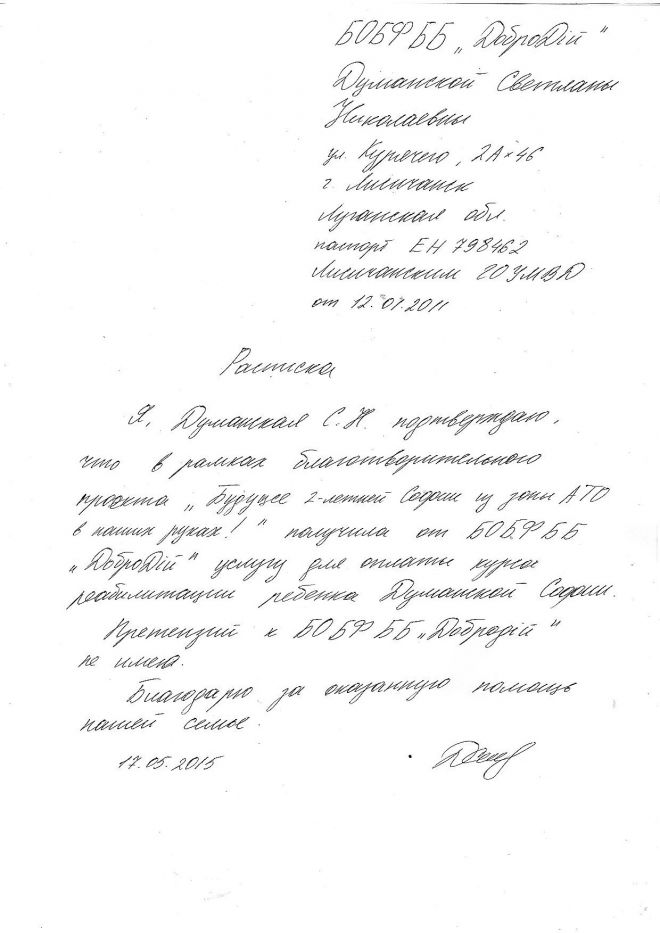 БОБФ ББ „ДоброДій"
Думанской Светланы
Николаевны
ул. Курячего, 2А×46
г. Лисичанск
Луганская обл.
паспорт ЕН 798462
Лисичанским ГОУМВД
от 12.07.2011
Расписка
Я, Думанская С.Н. подтверждаю,
что в рамках благотворительного
проекта „Будущее 2-летней Софии из зоны АТО
в наших руках!" получила от БОБФ ББ
„ДоброДій" услугу для оплаты курса
реабилитации ребенка Думанской Софии.
Претензий к БОБФ ББ „Добродій"
не имею.
Благодарю за оказанную помощь
нашей семье.
17.05.2015